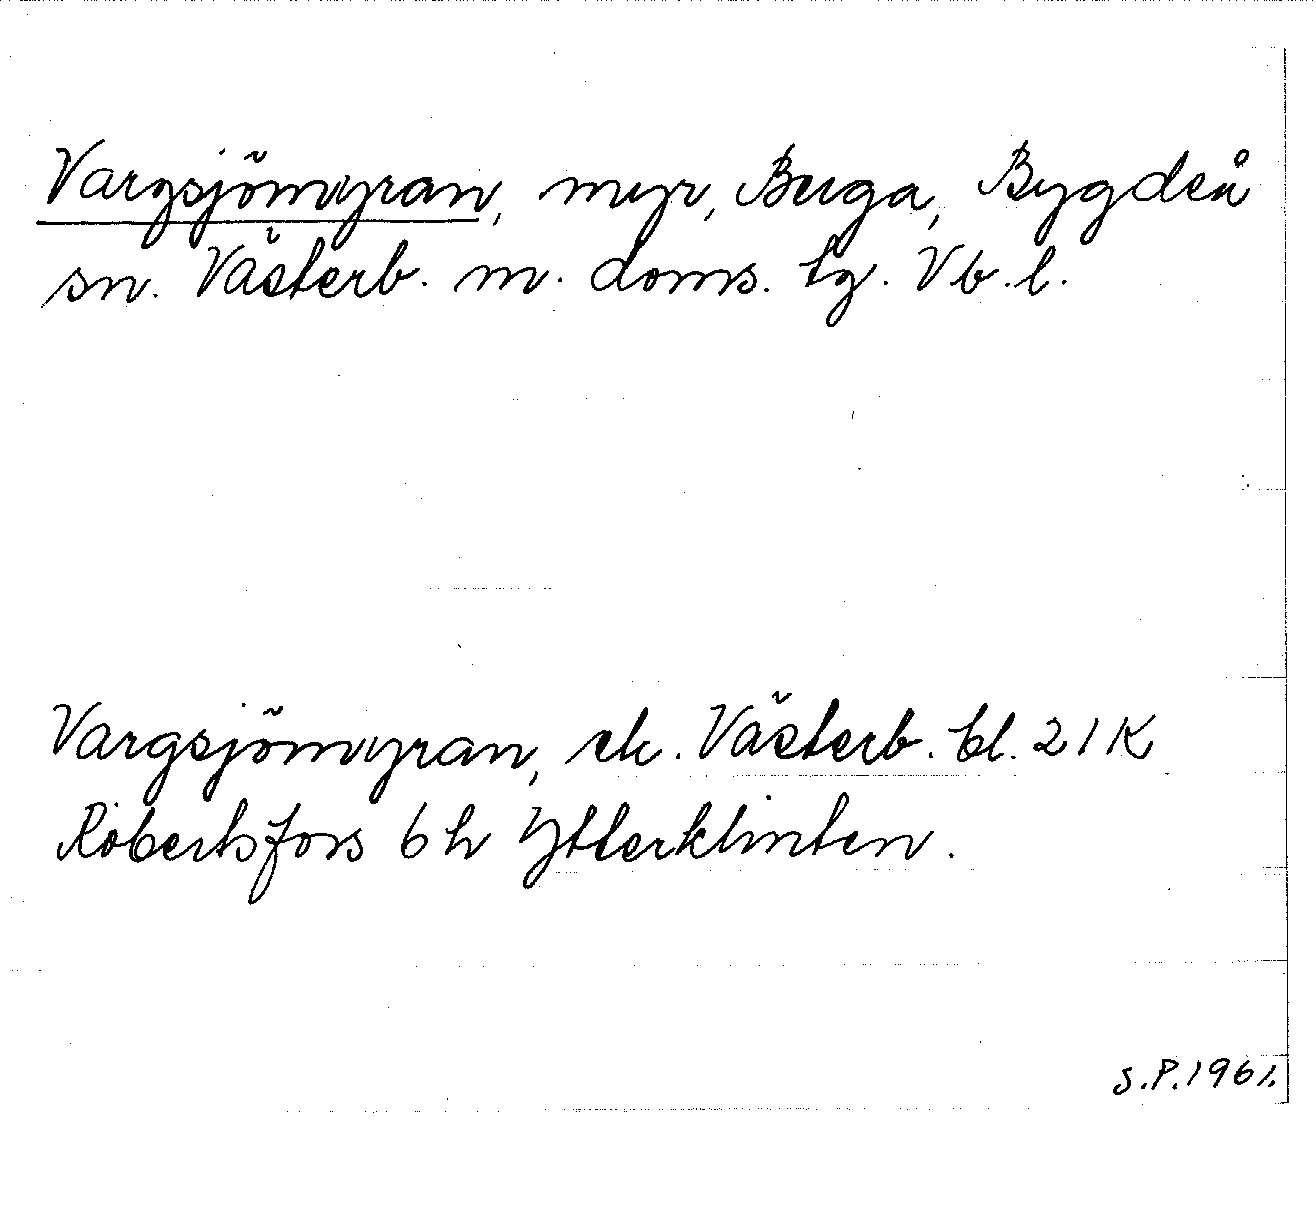 Vargsjömyran, myr, Berga, Bygdeå
sn. Västerb. m. doms. tg. Vb.l.
Vargsjömyran, ek. Västerb. bl. 21 K
Robertsfors 6 h Ytterklinten.
S.P.1961.